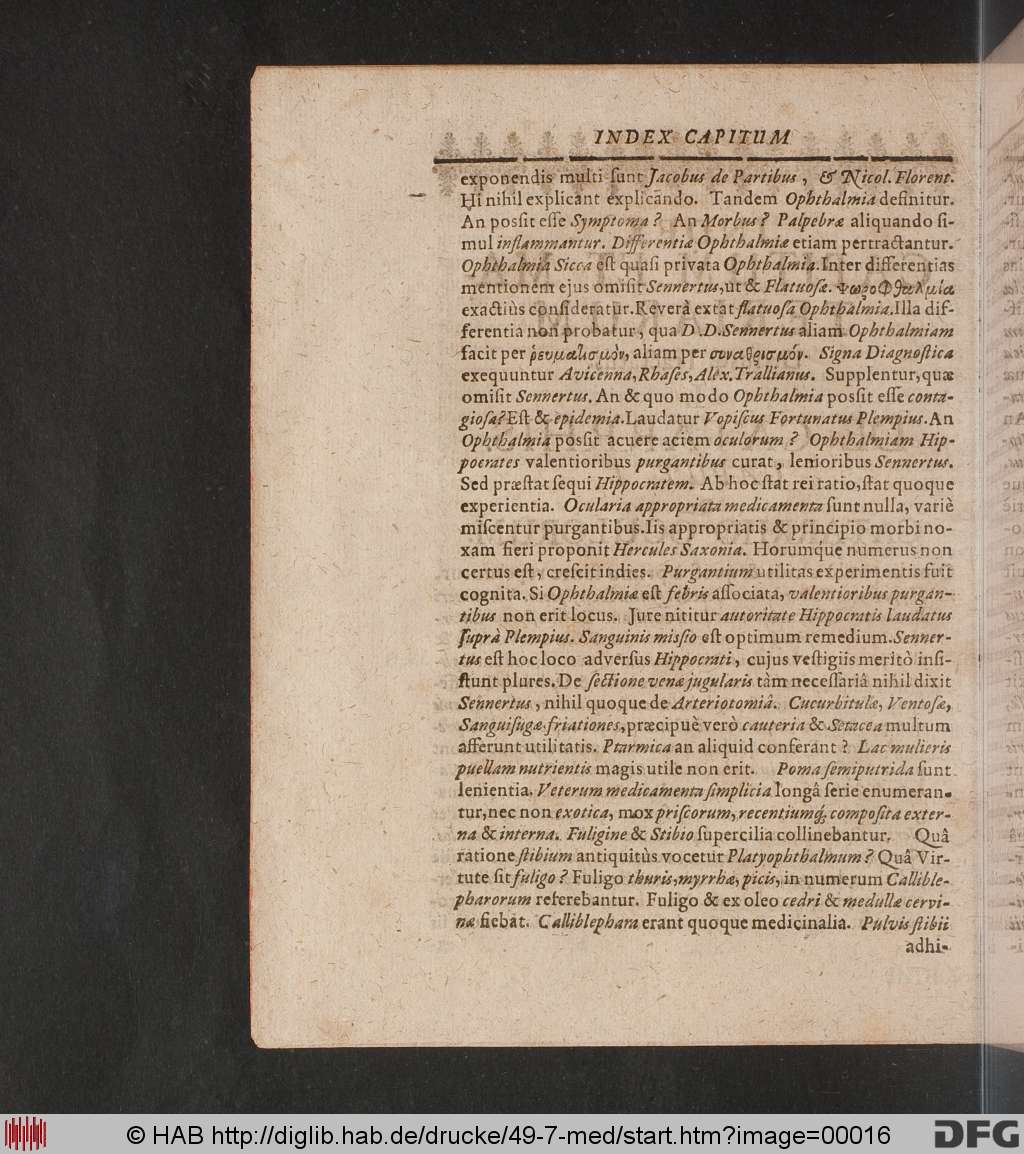 INDEX CAPITUM
exponendis multi sunt Jacobus de Partibus, & Nicol. Florent.
Hi nihil explicant explicando. Tandem Ophthalmia definitur.
An possit esse Symptoma? An Morbus? Palpebræ aliquando si-
mul inflammantur. Differentiæ Ophthalmiæ etiam pertractantur.
Ophthalmia Sicca est quasi privata Ophthalmia. Inter differentias
mentionem ejus omisit Sennertus, ut & Flatuosæ. ψωροφθαλμία
exactiùs consideratur. Reverâ extat flatuosa Ophthalmia. Illa dif-
ferentia non probatur, qua D.D. Sennertus aliam Ophthalmiam
facit per ῥευματισμὸν, aliam per συναθρισμόν. Signa Diagnostica
exequuntur Avicenna, Rhases, Alex. Trallianus. Supplentur, quæ
omisit Sennertus. An & quo modo Ophthalmia possit esse conta-
giosa? Est & epidemia. Laudatur Vopiscus Fortunatus Plempius. An
Ophthalmia possit acuere aciem oculorum? Ophthalmiam Hip-
pocrates valentioribus purgantibus curat, lenioribus Sennertus.
Sed præstat sequi Hippocratem. Ab hoc stat rei ratio, stat quoque
experientia. Ocularia appropriata medicamenta sunt nulla, variè
miscentur purgantibus. Iis appropriatis & principio morbi no-
xam fieri proponit Hercules Saxonia. Horumque numerus non
certus est, crescit indies. Purgantium utilitas experimentis fuit
cognita. Si Ophthalmiæ est febris associata, valentioribus purgan-
tibus non erit locus. Jure nititur autoritate Hippocratis laudatus
suprà Plempius. Sanguinis missio est optimum remedium. Senner-
tus est hoc loco adversus Hippocrati, cujus vestigiis meritò insi-
stunt plures. De sectione venæ jugularis tàm necessariâ nihil dixit
Sennertus, nihil quoque de Arteriotomiâ. Cucurbitulæ, Ventosæ,
Sanguisugæ, friationes, præcipuè verò cauteria & Setacea multum
afferunt utilitatis. Ptarmica an aliquid conferant? Lac mulieris
puellam nutrientis magis utile non erit. Poma semiputrida sunt
lenientia. Veterum medicamenta simplicia longâ serie enumeran-
tur, nec non exotica, mox priscorum, recentiumq́; composita exter-
na & interna. Fuligine & Stibio supercilia collinebantur. Quâ
ratione stibium antiquitùs vocetur Platyophthalmum? Quâ Vir-
tute sit fuligo? Fuligo thuris, myrrhæ, picis, in numerum Callible-
pharorum referebantur. Fuligo & ex oleo cedri & medullæ cervi-
næ fiebat. Calliblephara erant quoque medicinalia. Pulvis stibii
adhi-
© HAB http://diglib.hab.de/drucke/49-7-med/start.htm?image=00016
DFG